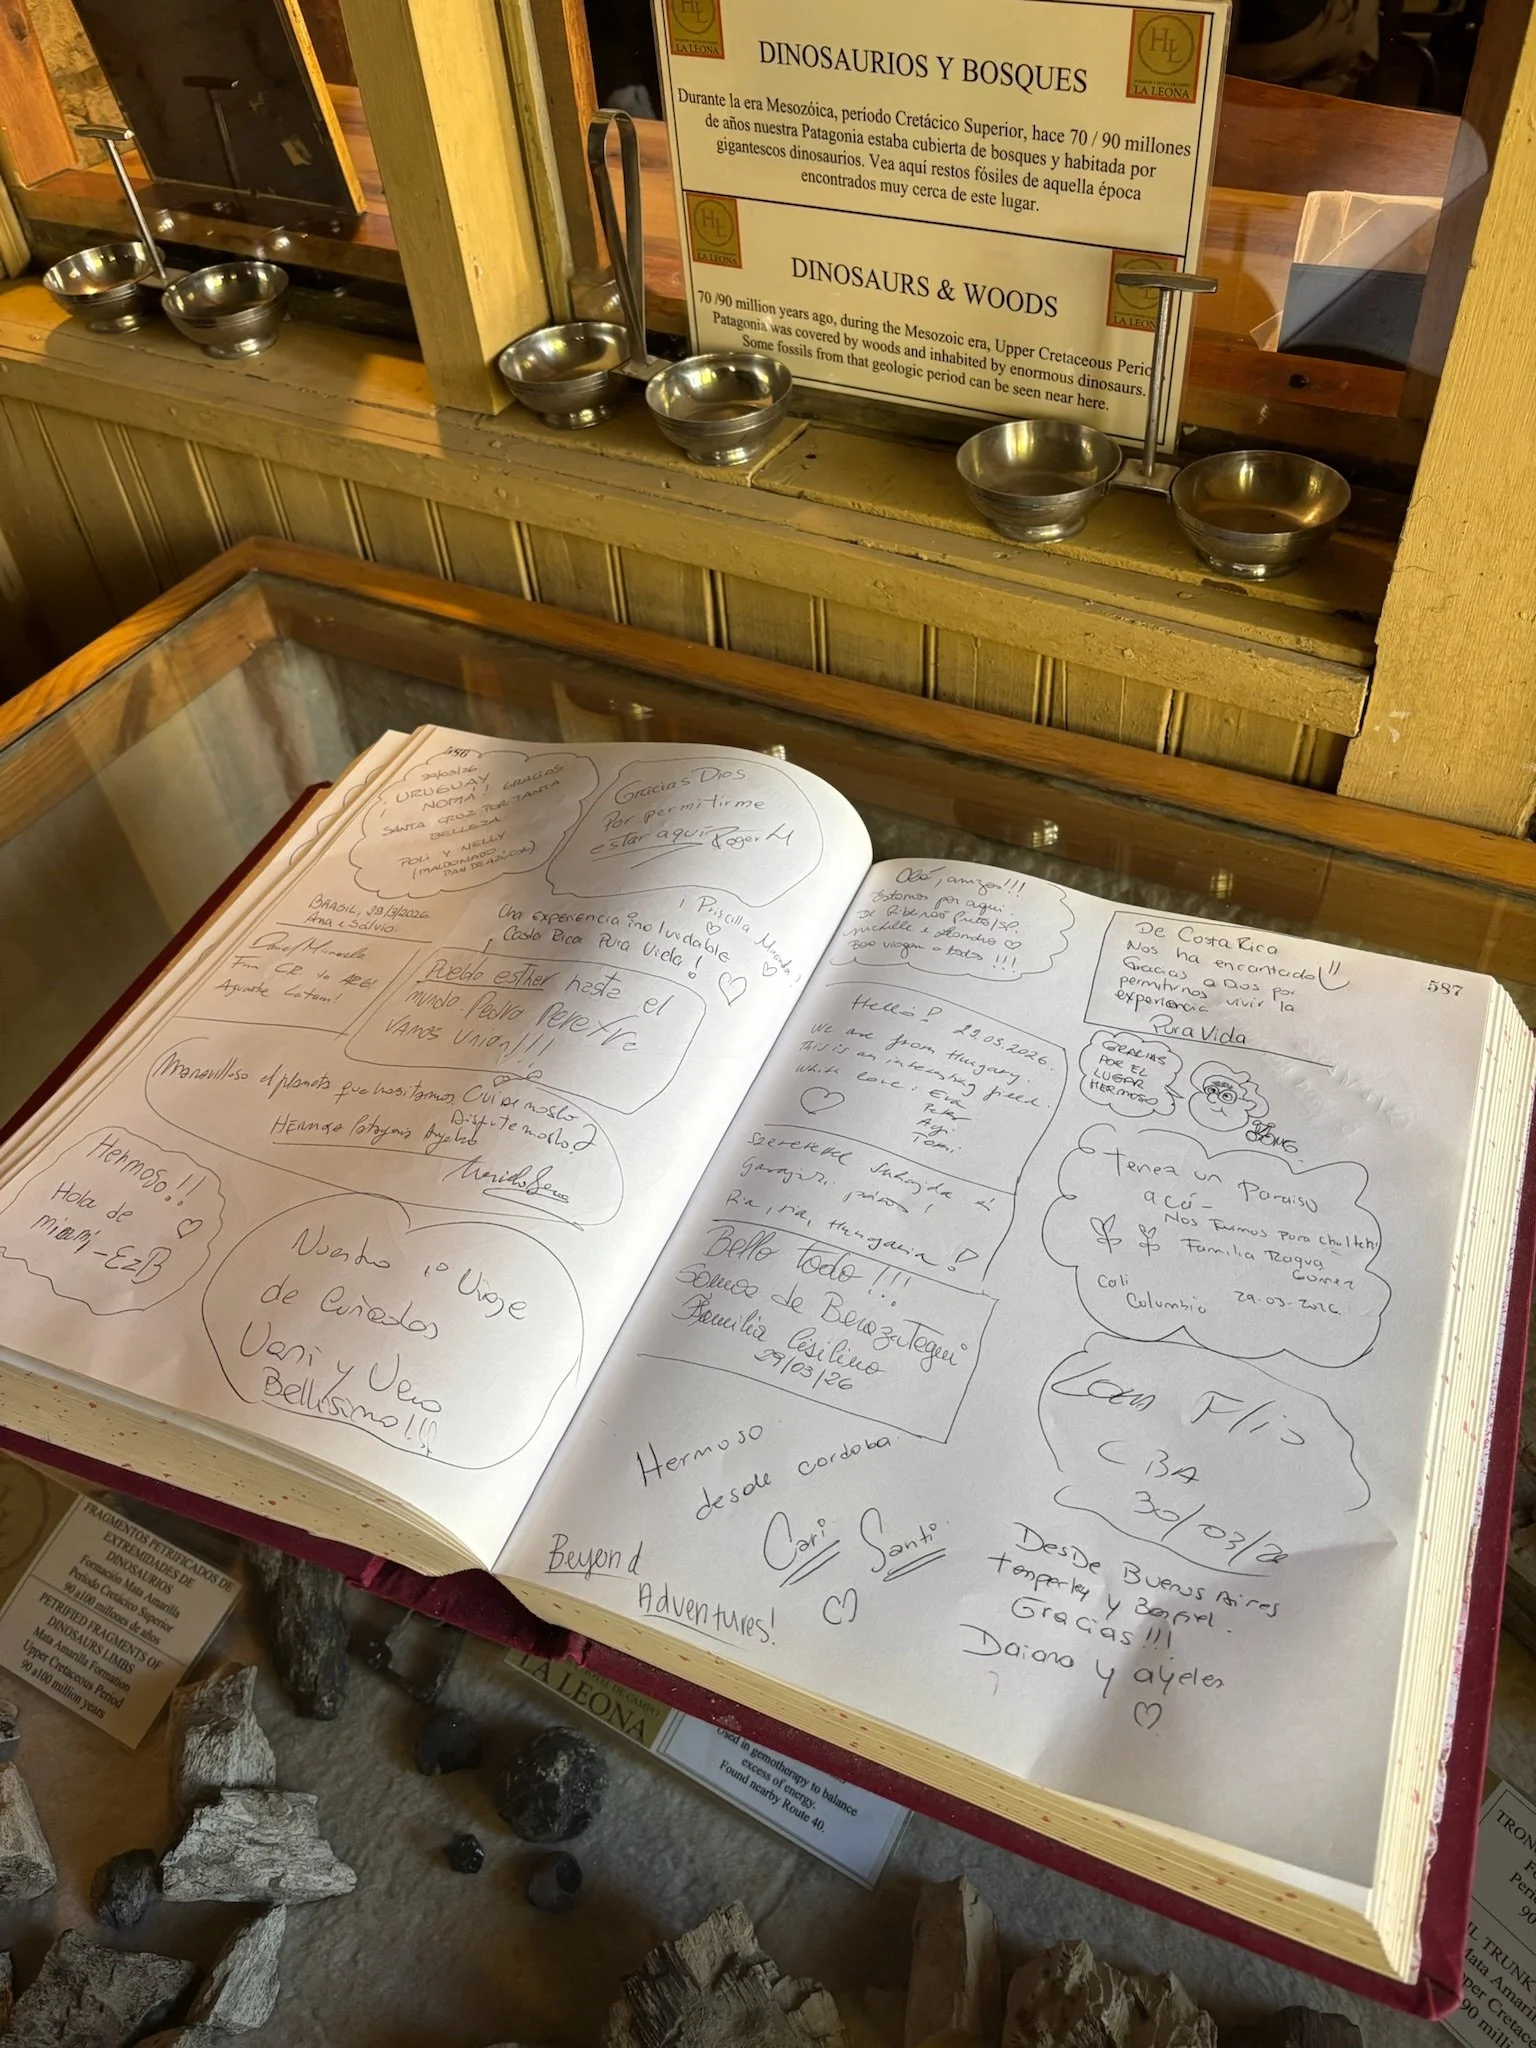 HL
LA LEONA
HL
LA LEONA
DINOSAURIOS Y BOSQUES
Durante la era Mesozóica, período Cretácico Superior, hace 70 / 90 millones
de años nuestra Patagonia estaba cubierta de bosques y habitada por
gigantescos dinosaurios. Vea aquí restos fósiles de aquella época
encontrados muy cerca de este lugar.
HL
LA LEONA
LA LEONA
DINOSAURS & WOODS
70 /90 million years ago, during the Mesozoic era, Upper Cretaceous Perio
Patagonia was covered by woods and inhabited by enormous dinosaurs.
Some fossils from that geologic period can be seen near here.
586
29/03/26
URUGUAY
NOMÁ! GRACIAS
SANTA CRUZ POR TANTA
BELLEZA
POLI Y NELLY
(MALDONADO
PAN DE AZÚCAR)
Gracias Dios
Por permitirme
estar aquí Roger M
BRASIL, 29/3/2026
Ana e Silvio
Una experiencia inolvidable
Costa Rica Pura Vida!
Priscilla
Aguante Latam!
Pueblo esther hasta el
mundo. Pedro
VAMOS UNION!!!
Maravilloso el planeta que habitamos Cuidemoslo
Disfrutemoslo
HERMOSA Patagonia
Hermoso!!
Hola de
miami - EzB
Nuestro 1º Viaje
de Cuñados
Vani y Vero
Bellisimo!!!
587
Olá, amigos!!!
Estamos por aqui
De Ribeirão Preto/SP.
Michelle e Leandro
Boa viagem a todos!!!
De Costa Rica
Nos ha encantado!!
Gracias a Dios por
permitirnos vivir la
experiencia
Pura Vida
GRACIAS
POR EL
LUGAR
HERMOSO
Hello! 29.03.2026.
We are from Hungary.
This is an interesting place.
With love: Eva
Peter
Agi
Tomi
Ria, ria, Hungaria!
Tenez un Paraiso
acá -
Nos fuimos para chalten
Familia
Gomez
Cali
Columbia 29-03-2026.
Bello todo!!!
Somos de Berazategui
Familia Cisilino
29/03/26
CBA
30/03/26
Hermoso
desde cordoba.
Cari Santi
Beyond
Adventures!
Desde Buenos Aires
Temperley y
Gracias!!!
Daiana y ayelen
FRAGMENTOS PETRIFICADOS DE
EXTREMIDADES DE
DINOSAURIOS
Formación Mata Amarilla
Período Cretácico Superior
90 a 100 millones de años
PETRIFIED FRAGMENTS OF
DINOSAURS LIMBS
Mata Amarilla Formation
Upper Cretaceous Period
90 a 100 million years
DE CAMPO
LA LEONA
Used in gemotherapy to balance
excess of energy.
Found nearby Route 40.
TRON
90
IL TRUNK
Mata Amari
pper Cretace
90 milli